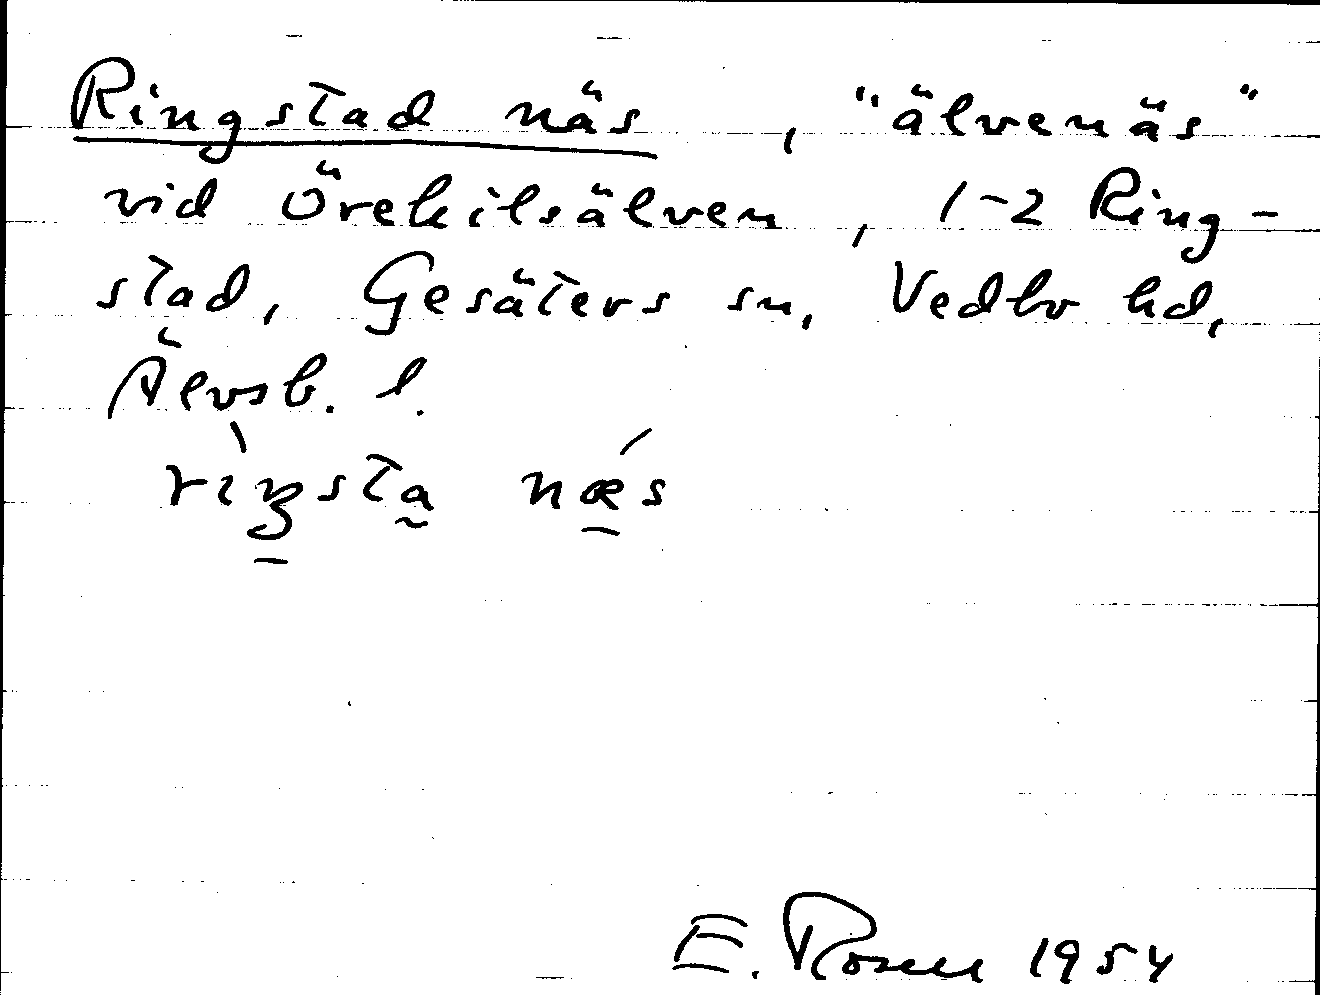 Ringstad näs, "älvenäs"
vid Örekilsälven, 1-2 Ring-
stad, Gesäters sn, Vedbo hd,
Älvsb. l.
rìŋsta nǽs
E. Rosen 1954